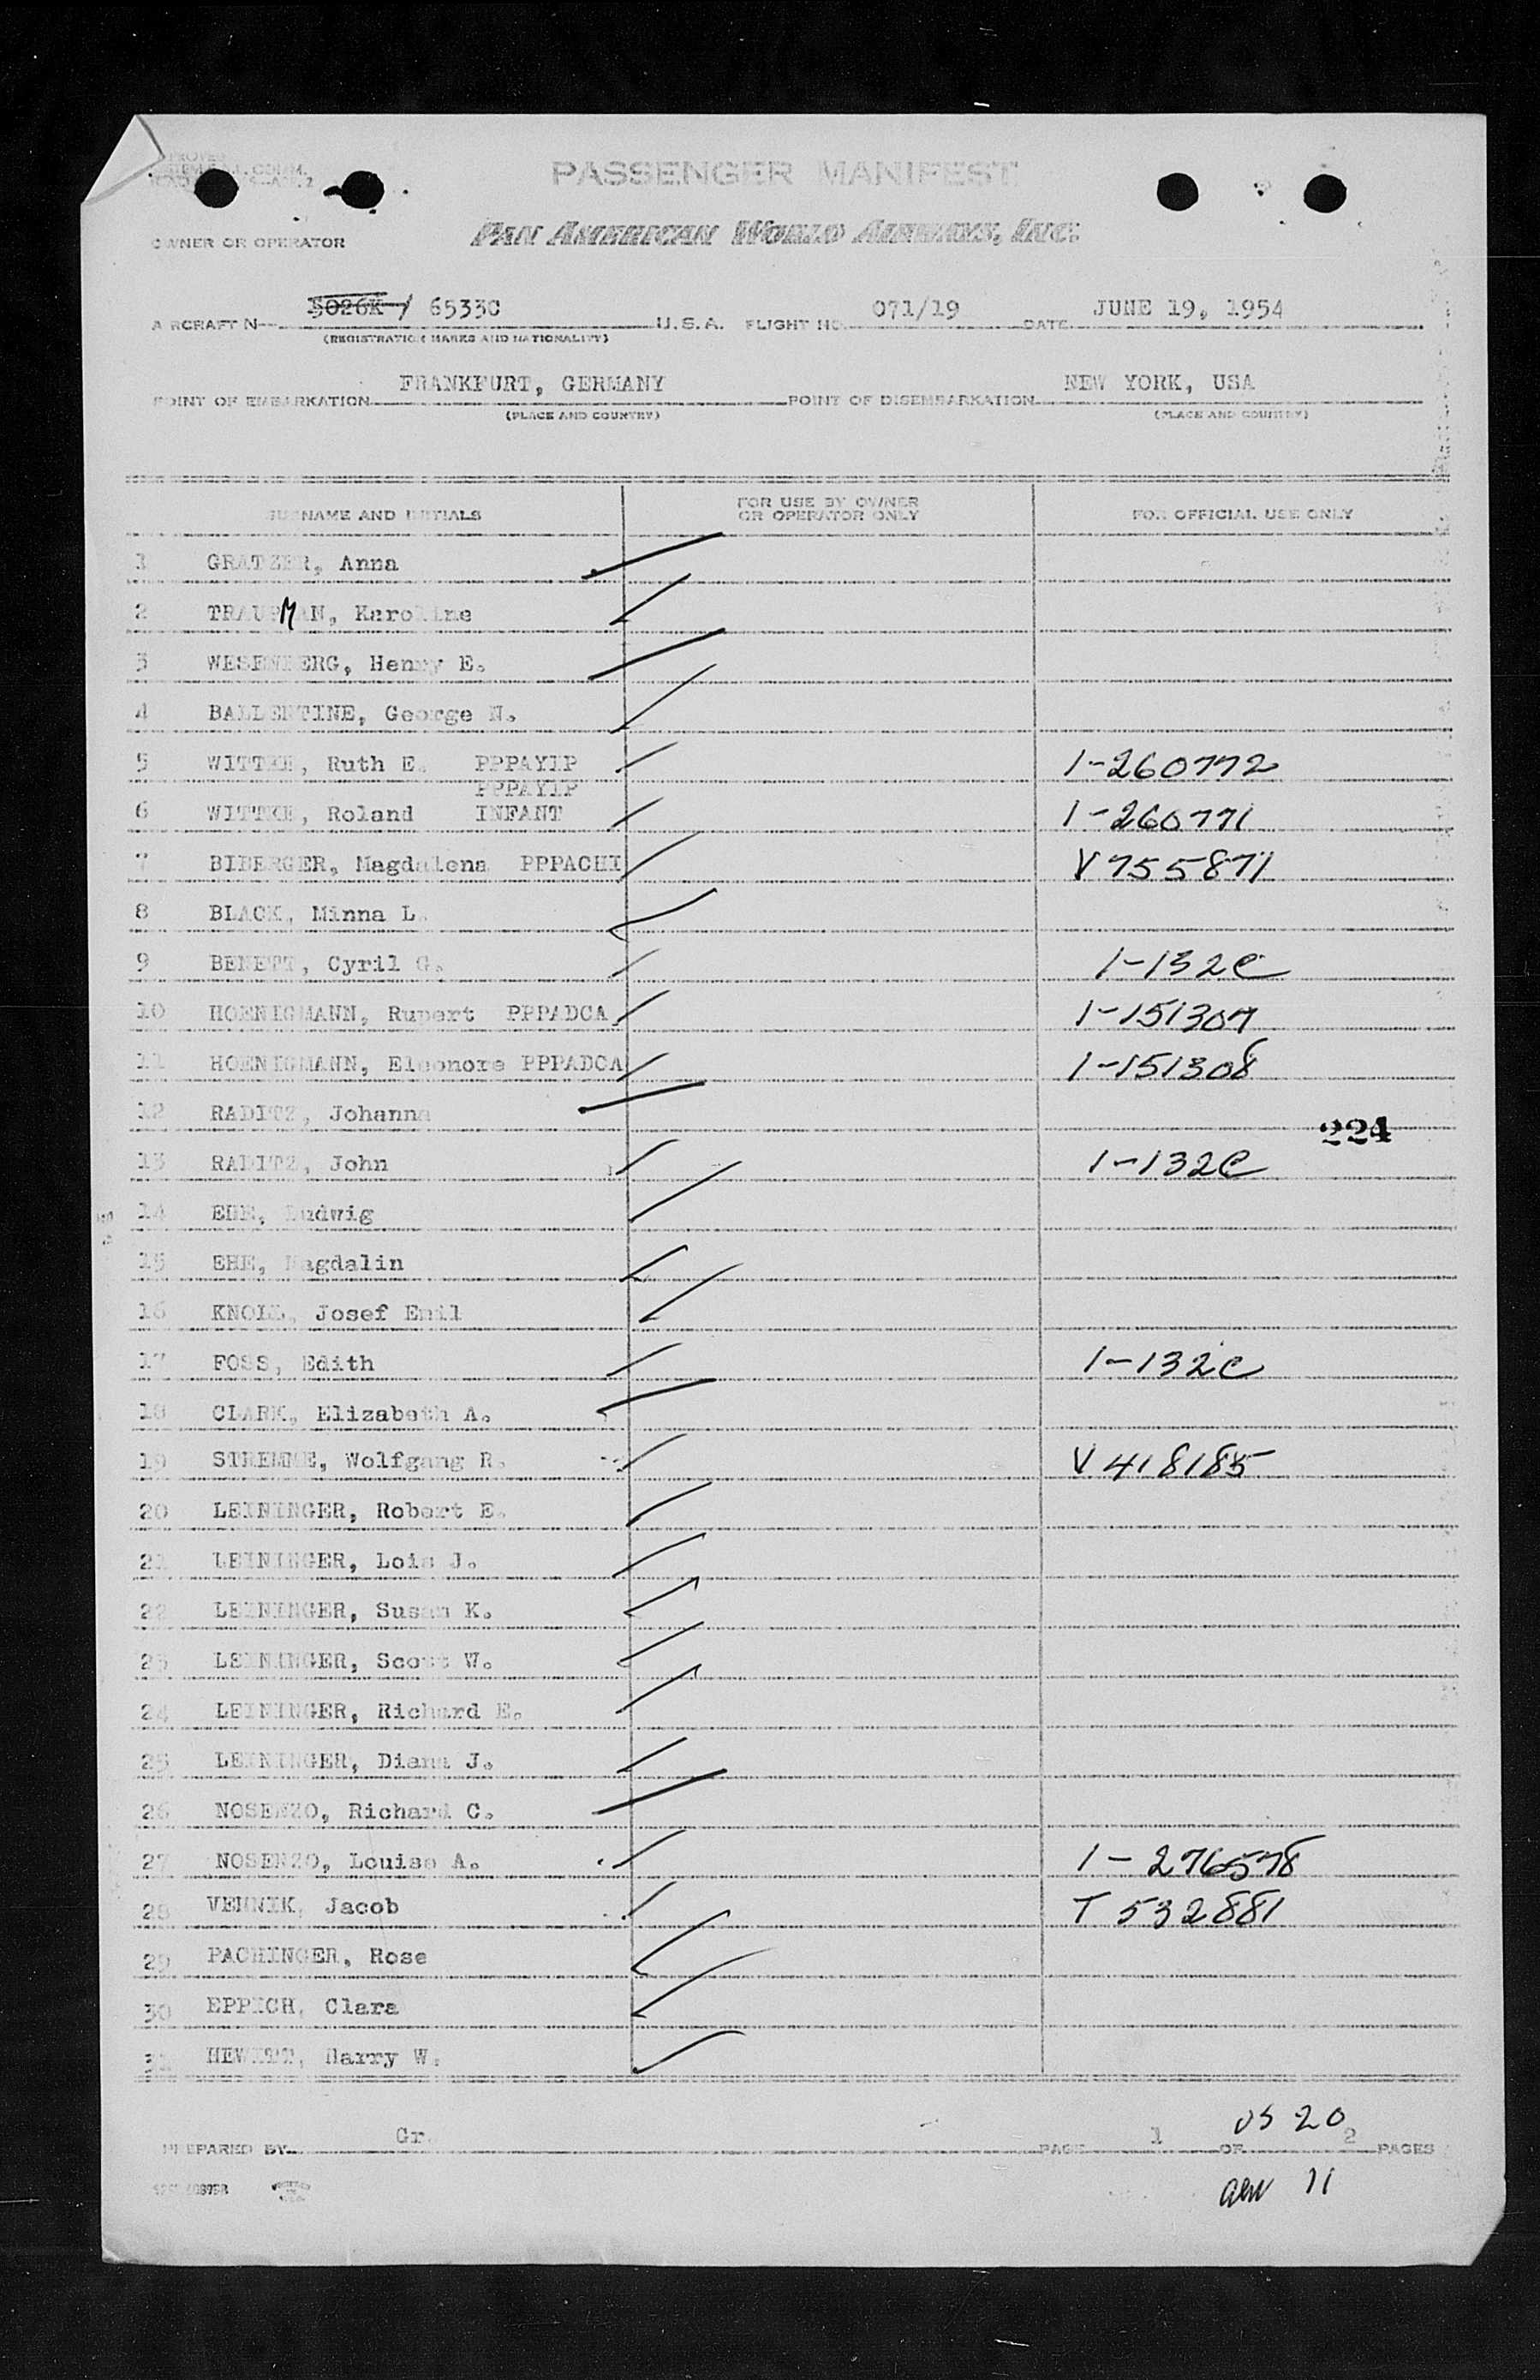 PASSENGER MANIFEST
OWNER OR OPERATOR PAN AMERICAN WORLD AIRWAYS, INC.
AIRCRAFT N 5026K / 6533C U.S.A. FLIGHT NO. 071/19 DATE JUNE 19, 1954
(REGISTRATION MARKS AND NATIONALITY)
POINT OF EMBARKATION FRANKFURT, GERMANY POINT OF DISEMBARKATION NEW YORK, USA
(PLACE AND COUNTRY) (PLACE AND COUNTRY)
SURNAME AND INITIALS FOR USE BY OWNER OR OPERATOR ONLY FOR OFFICIAL USE ONLY
1 GRATZER, Anna
2 TRAUPMAN, Karoline
3 WESENBERG, Henry E.
4 BALLENTINE, George N.
5 WITTKE, Ruth E. PPPAYIP 1-260772
PPPAYIP
6 WITTKE, Roland INFANT 1-260771
7 BIBERGER, Magdalena PPPACHI V755871
8 BLACK, Minna L.
9 BENETT, Cyril G. 1-132C
10 HOENIGMANN, Rupert PPPADCA 1-151307
11 HOENIGMANN, Eleonore PPPADCA 1-151308
12 RADITZ, Johanna
224
13 RADITZ, John 1-132C
14 EHE, Ludwig
15 EHE, Magdalin
16 KNOLL, Josef Emil
17 FOSS, Edith 1-132C
18 CLARK, Elizabeth A.
19 STREMME, Wolfgang R. V418185
20 LEININGER, Robert E.
21 LEININGER, Lois J.
22 LEININGER, Susan K.
23 LEININGER, Scott W.
24 LEININGER, Richard E.
25 LEININGER, Diana J.
26 NOSENZO, Richard C.
27 NOSENZO, Louise A. 1-276578
28 VERNIK, Jacob T 532881
29 PACHINGER, Rose
30 EPPICH, Clara
31 HEWITT, Harry W.
US 20
PREPARED BY Gr. PAGE 1 OF 2 PAGES
11